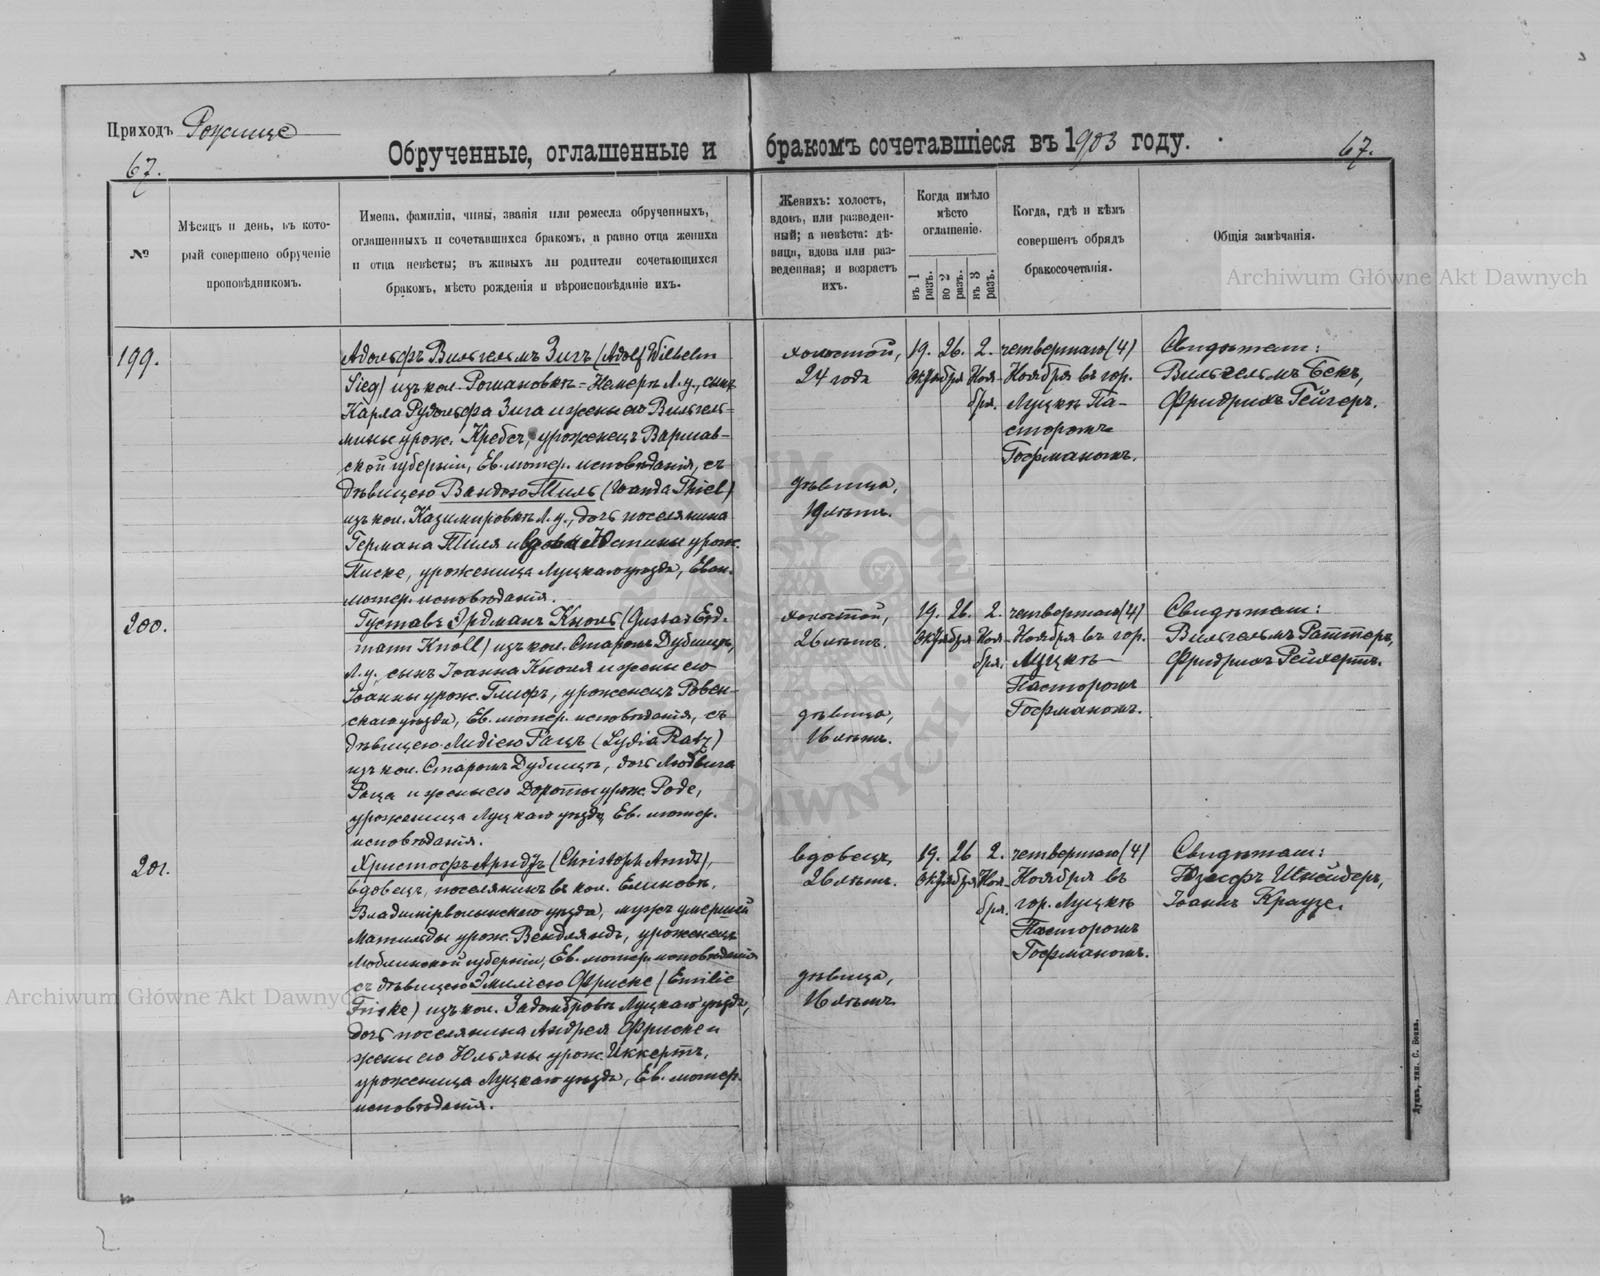 Приходъ Рожище
67.
Обрученные, оглашенные и бракомъ сочетавшіеся въ 1903 году.
67.
№
Мѣсяцъ и день, въ кото-
рый совершено обрученіе
проповѣдникомъ.
Имена, фамиліи, чины, званія или ремесла обрученныхъ,
оглашенныхъ и сочетавшихся бракомъ, а равно отца жениха
и отца невѣсты; въ живыхъ ли родители сочетающихся
бракомъ, мѣсто рожденія и вѣроисповѣданіе ихъ.
Женихъ: холостъ,
вдовъ, или разведен-
ный; а невѣста: дѣ-
вица, вдова или раз-
веденная; и возрастъ
ихъ.
Когда имѣло
мѣсто
оглашеніе.
въ 1 разъ.
во 2 разъ.
въ 3 разъ.
Когда, гдѣ и кѣмъ
совершенъ обрядъ
бракосочетанія.
Общія замѣчанія.
199.
Адольфъ Вильгельмъ Зигъ (Adolf Wilhelm
Sieg) изъ кол. Романовки-Немеръ Л.у., сынъ
Карла Рудольфа Зига и жены его Вильгель-
мины урож. Кребсъ, уроженецъ Варшав-
ской губерніи, Ев. лютер. исповѣданія, съ
дѣвицею Вандою Тиль (Wanda Thiel)
изъ кол. Казимировки Л.у., дочь поселянина
Германа Тиля и вдовы Юстины урож.
Писке, уроженица Луцкаго уѣзда, Еван.
лютер. исповѣданія.
холостой,
24 года
дѣвица,
19 лѣтъ.
19. 26. 2.
Октября Ноя-
бря.
четвертаго (4)
Ноября въ гор.
Луцкѣ Па-
сторомъ
Гофманомъ.
Свидѣтели:
Вильгельмъ Бекъ,
Фридрихъ Гейгеръ.
200.
Густавъ Эрдманъ Кноль (Gustav Erd-
mann Knoll) изъ кол. Старой Дубищъ,
Л.у., сынъ Іоанна Кноля и жены его
Іоанны урож. Глифъ, уроженецъ Ровен-
скаго уѣзда, Ев. лютер. исповѣданія, съ
дѣвицею Лидіею Рацъ (Lydia Ratz)
изъ кол. Старой Дубищъ, дочь Людвига
Раца и жены его Доротты урож. Роде,
уроженица Луцкаго уѣзда, Ев. лютер.
исповѣданія.
холостой,
26 лѣтъ.
дѣвица,
16 лѣтъ.
19. 26. 2.
Октября Ноя-
бря.
четвертаго (4)
Ноября въ гор.
Луцкѣ
Пасторомъ
Гофманомъ.
Свидѣтели:
Вильгельмъ Раттеръ,
Фридрихъ Рейхертъ.
201.
Христофъ Арндтъ (Christoph Arndt),
вдовецъ, поселянинъ въ кол. Елиновкѣ,
Владимірволынскаго уѣзда, мужъ умершей
Матильды урож. Вендляндъ, уроженецъ
Люблинской губерніи, Ев. лютер. исповѣданія
съ дѣвицею Эмиліею Фриске (Emilie
Friske) изъ кол. Задомбровки Луцкаго уѣзда,
дочь поселянина Андрея Фриске и
жены его Юльяны урож. Иккертъ,
уроженица Луцкаго уѣзда, Ев. лютер.
исповѣданія.
вдовецъ,
26 лѣтъ.
дѣвица,
16 лѣтъ.
19. 26 2.
Октября Ноя-
бря.
четвертаго (4)
Ноября въ
гор. Луцкѣ
Пасторомъ
Гофманомъ.
Свидѣтели:
Юзефъ Шнейдеръ,
Іоаннъ Краузе.
Archiwum Główne Akt Dawnych
Archiwum Główne Akt Dawnych